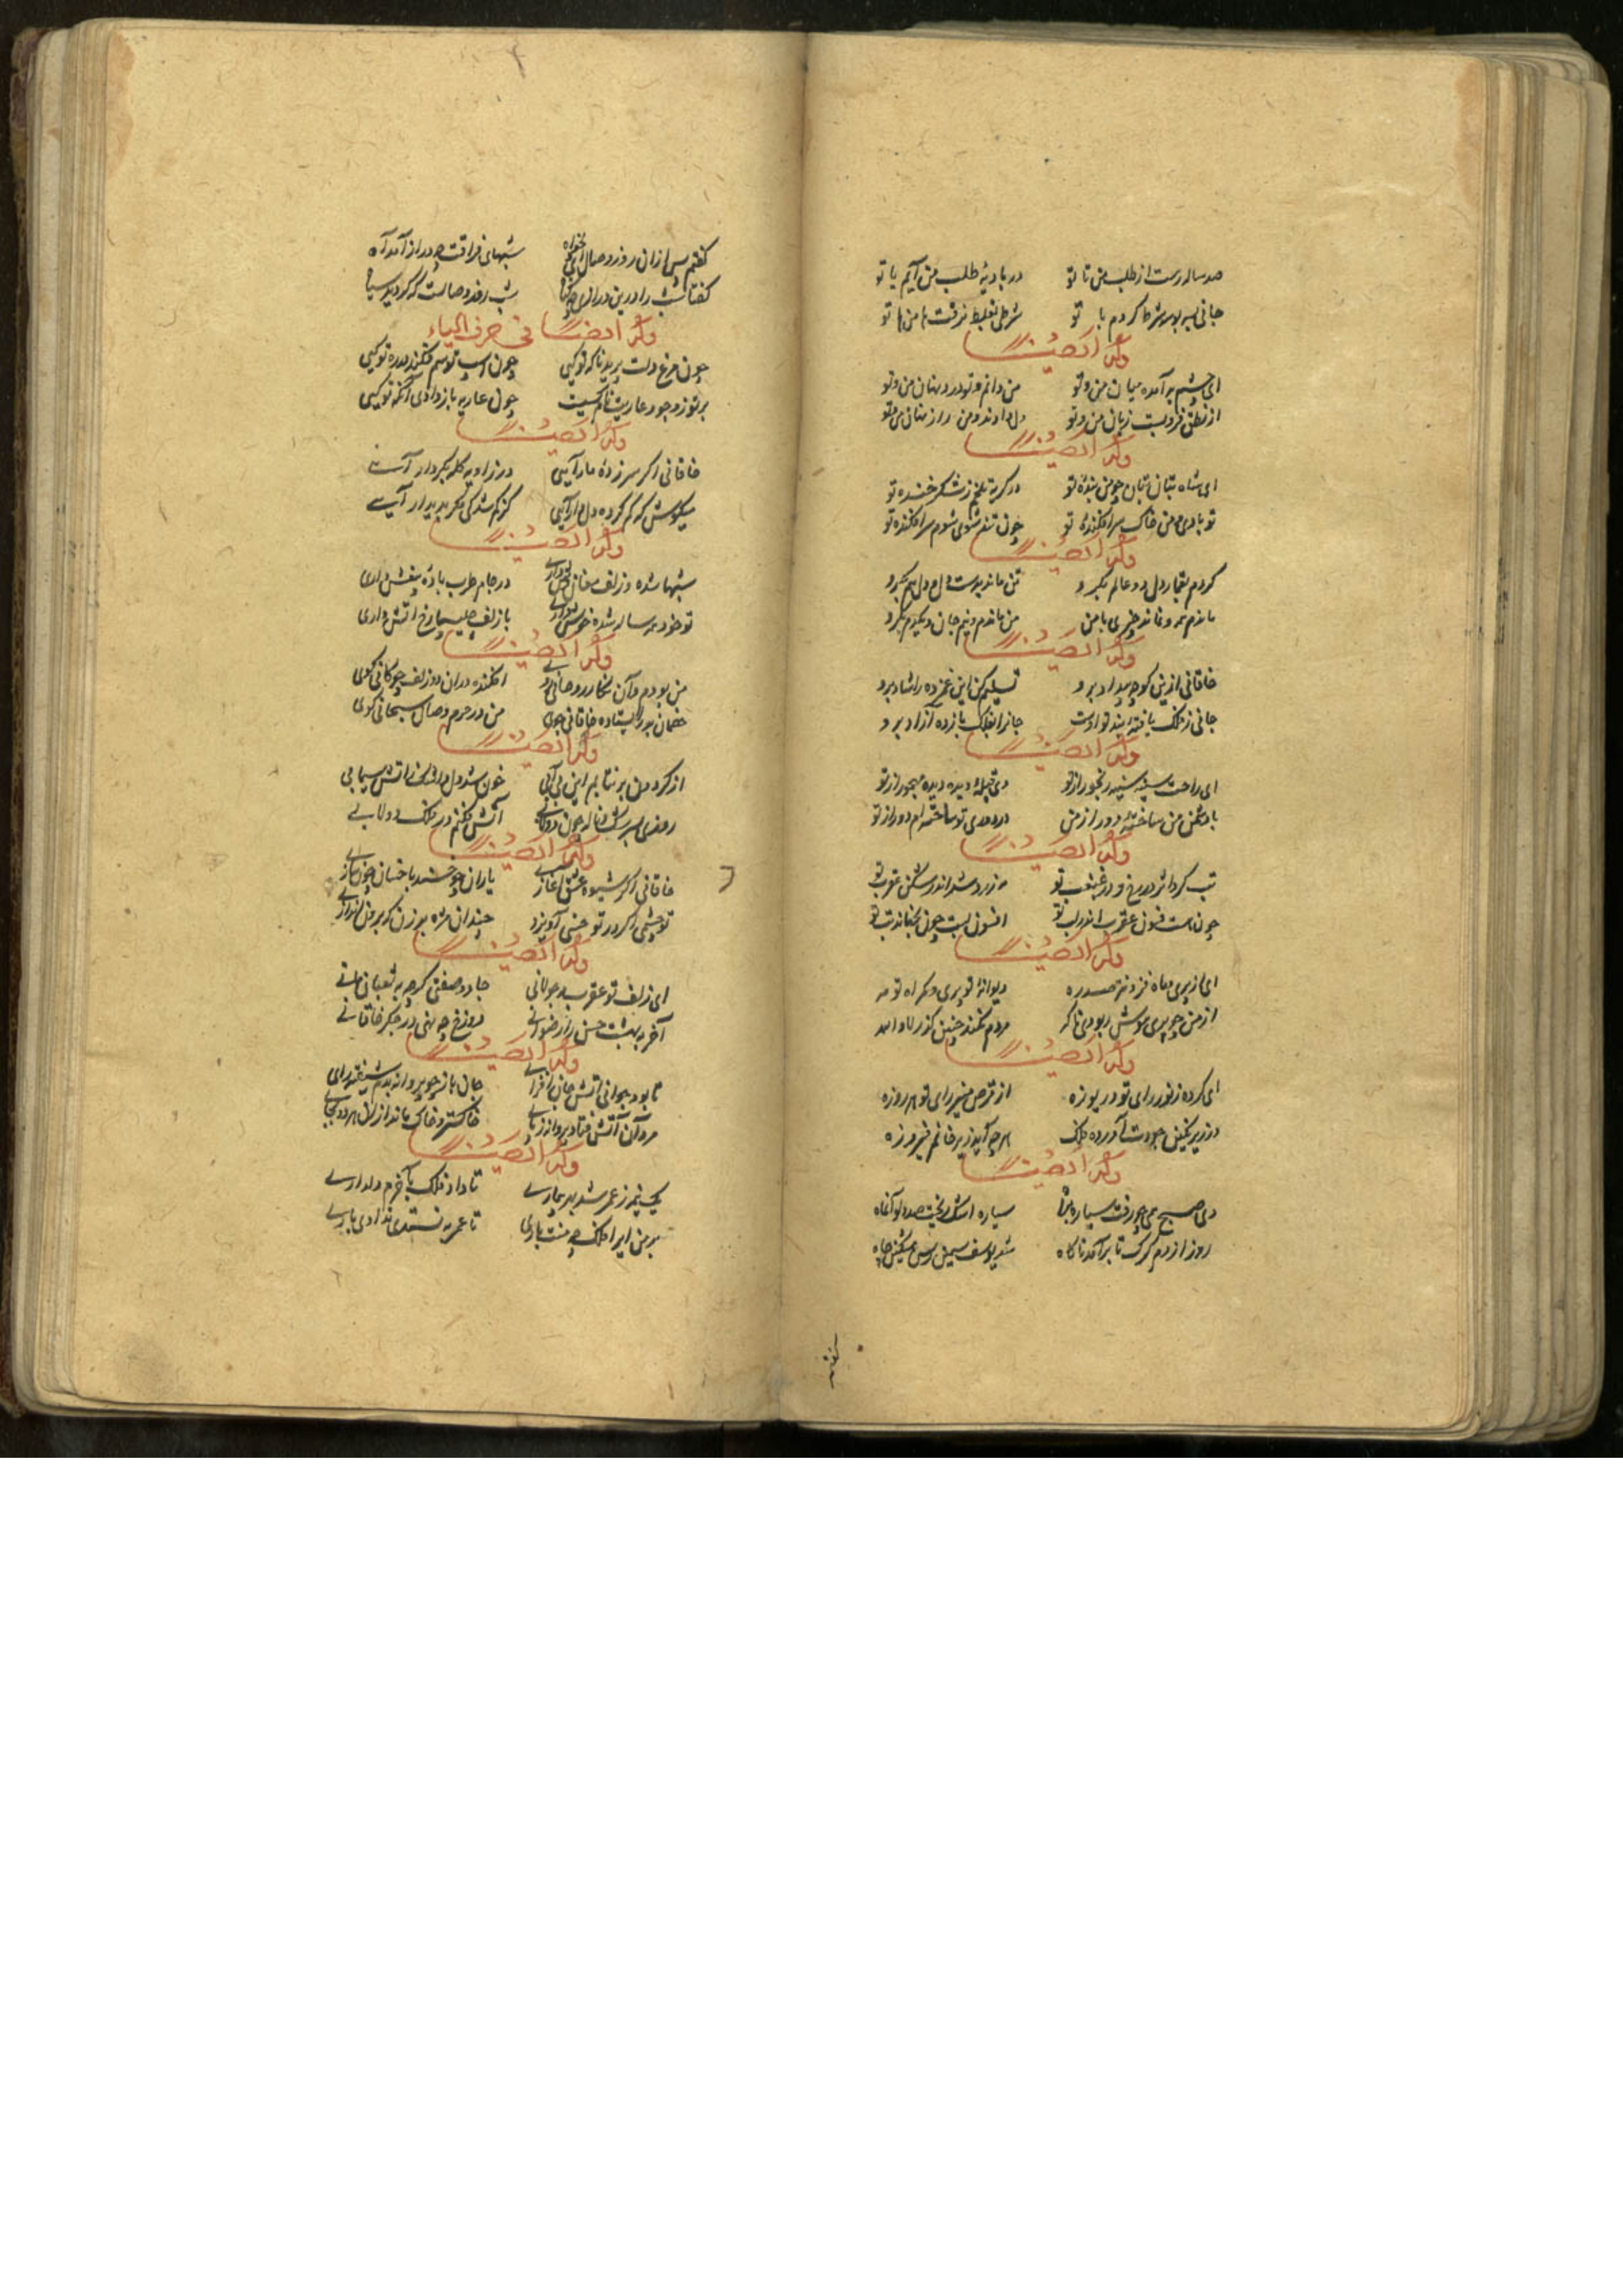 صد ساله رهست از طلب من تا تو در بادیهٔ طلب من آیم یا تو
جانی به بوسه شرط کردم با تو شرطی بغلط نرفت ها من ها تو
وله ایضا
ای چشم بد آمده میان من و تو من دانم و تو درد نهان من و تو
از نطق فروبست زبان من و تو من و تو
وله ایضا
ای شاه بتان بتان چو من بندهٔ تو در گریهٔ تلخم ز شکر خندهٔ تو
تو بادی و من خاک سرافکندهٔ تو چون تند شوی شوم سرافکنده تو
وله ایضا
کردم بقمار دل دو عالم بگرو تن ماند بدست دل و دل هم بگرو
ماندم همه و نماند چیزی با من من ماندم و نیم جان و یکدم بگرو
وله ایضا
خاقانی ازین کوچهٔ بیداد برو تسلیم کن این غمزده را شاد برو
جانی ز فلک یافتهٔ بند تو اوست جانرا بفلک باز ده آزاد برو
وله ایضا
ای راحت سینه سینه رنجور از تو وی قبلهٔ دیده دیده مهجور از تو
با دشمن من ساختهٔ دور از من در دوری تو سوخته‌ام دور از تو
وله ایضا
تب کرد اثر در رخ و در غبغب تو مه زرد شد اندر شکن عقرب تو
چون هست فسون عقرب اندر لب تو افسون لبت چون نجهاند تب تو
وله ایضا
ای از پری و ماه فزونتر صد ره دیوانهٔ تو پری و گمراه تو مه
از من چو پری هوش ربودی ناگه مردم نکند چنین
وله ایضا
ای کرده ز نور رای تو دریوزه از قرص منیر رای تو هر روزه
در زیر نگین جودت آورده فلک هرچه آید زیر خاتم فیروزه
وله ایضا
دی صبح دمی چو رفت سیاره براه سیاره اشک ریخت صد دلو آنگاه
روز از دم گرگ تا برآمد ناگاه شد یوسف سیمین رسن مشکین چاه
گفتم
گفتم پس ازان روز وصال ای دلخواه شبهای فراقت چه دراز آمد آه
گفتا شب را درین درازی چه گناه شب روز وصالست که گردید سیاه
وله ایضا فی حرف الیاء
چون مرغ دلت پرید ناگه تو کیی چون اسپ تو سم فکند در ره تو کیی
بر تو ز وجود عاریت نام کسیست چون عاریه باز دادی آنگه تو کیی
وله ایضا
خاقانی اگر سر زده ما را آیی در زاویه کله بگردار آیی
میکوش که گم کردهٔ دل را آیی گر گم شدگی مگر پدیدار آیی
وله ایضا
شبها شده وز زلف مغانه‌وش داری در جام طرب بادهٔ بیغش داری
تو خود همه ساله شده خوش داری با زلف چلیپا رخ آتش داری
وله ایضا
من بودم و آن نگار روحانی روی افکنده در آن دو زلف چوگانی گوی
خصمان به در ایستاده خاقانی جوی من در حرم وصال سبحانی گوی
وله ایضا
از گردون بر نتابم این بی‌آبی خون شد دل و اشک آتش سیمابی
روزی به سرشک و ناله چون دولابی آتش فکنم در فلک دولابی
وله ایضا
خاقانی اگر شیوه عشق آغازی یاران چو خسند با خسان چون سازی
تو چشمی اگر در تو خسی آویزد چندان مژه بر زن که برون اندازی
وله ایضا
ای زلف تو عقرب سیه جولانی جادو صفتی گرچه به ثعبان مانی
آخر به بهشت حسن رضوانی دوزخ چه نهی در جگر خاقانی
وله ایضا
تا بود بجوانی آتش جان افزای جان باز چو پروانه بدم شیفته رای
مرد آن آتش فتاد پروانه ز پای خاکستر و خاک ماند ازان هر دو بجای
وله ایضا
یک نیمه ز عمر شد به بیماری تا داد فلک بآخرم دلداری
بر من این را فلک چه منت باری تا عمر نستدی ندادی یاری